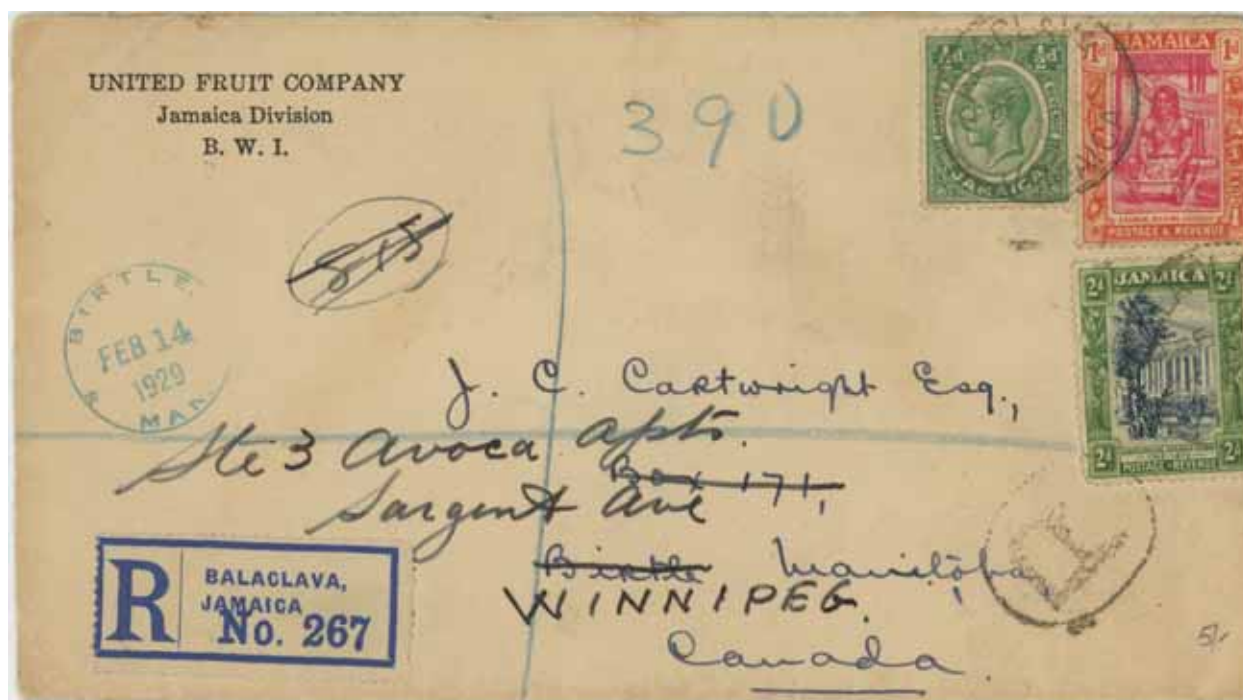 UNITED FRUIT COMPANY
Jamaica Division
B. W. I.
390
½d ½d
JAMAICA
JAMAICA
1d 1d
POSTAGE & REVENUE
JAMAICA
2d 2d
2d 2d
POSTAGE & REVENUE
515
BIRTLE
FEB 14
1929
MAN
J. C. Cartwright Esq.,
Ste 3 Avoca Apts.
Box 171,
Sargent Ave
Birtle Manitoba
WINNIPEG.
Canada.
T
R
BALACLAVA,
JAMAICA
No. 267
5/-